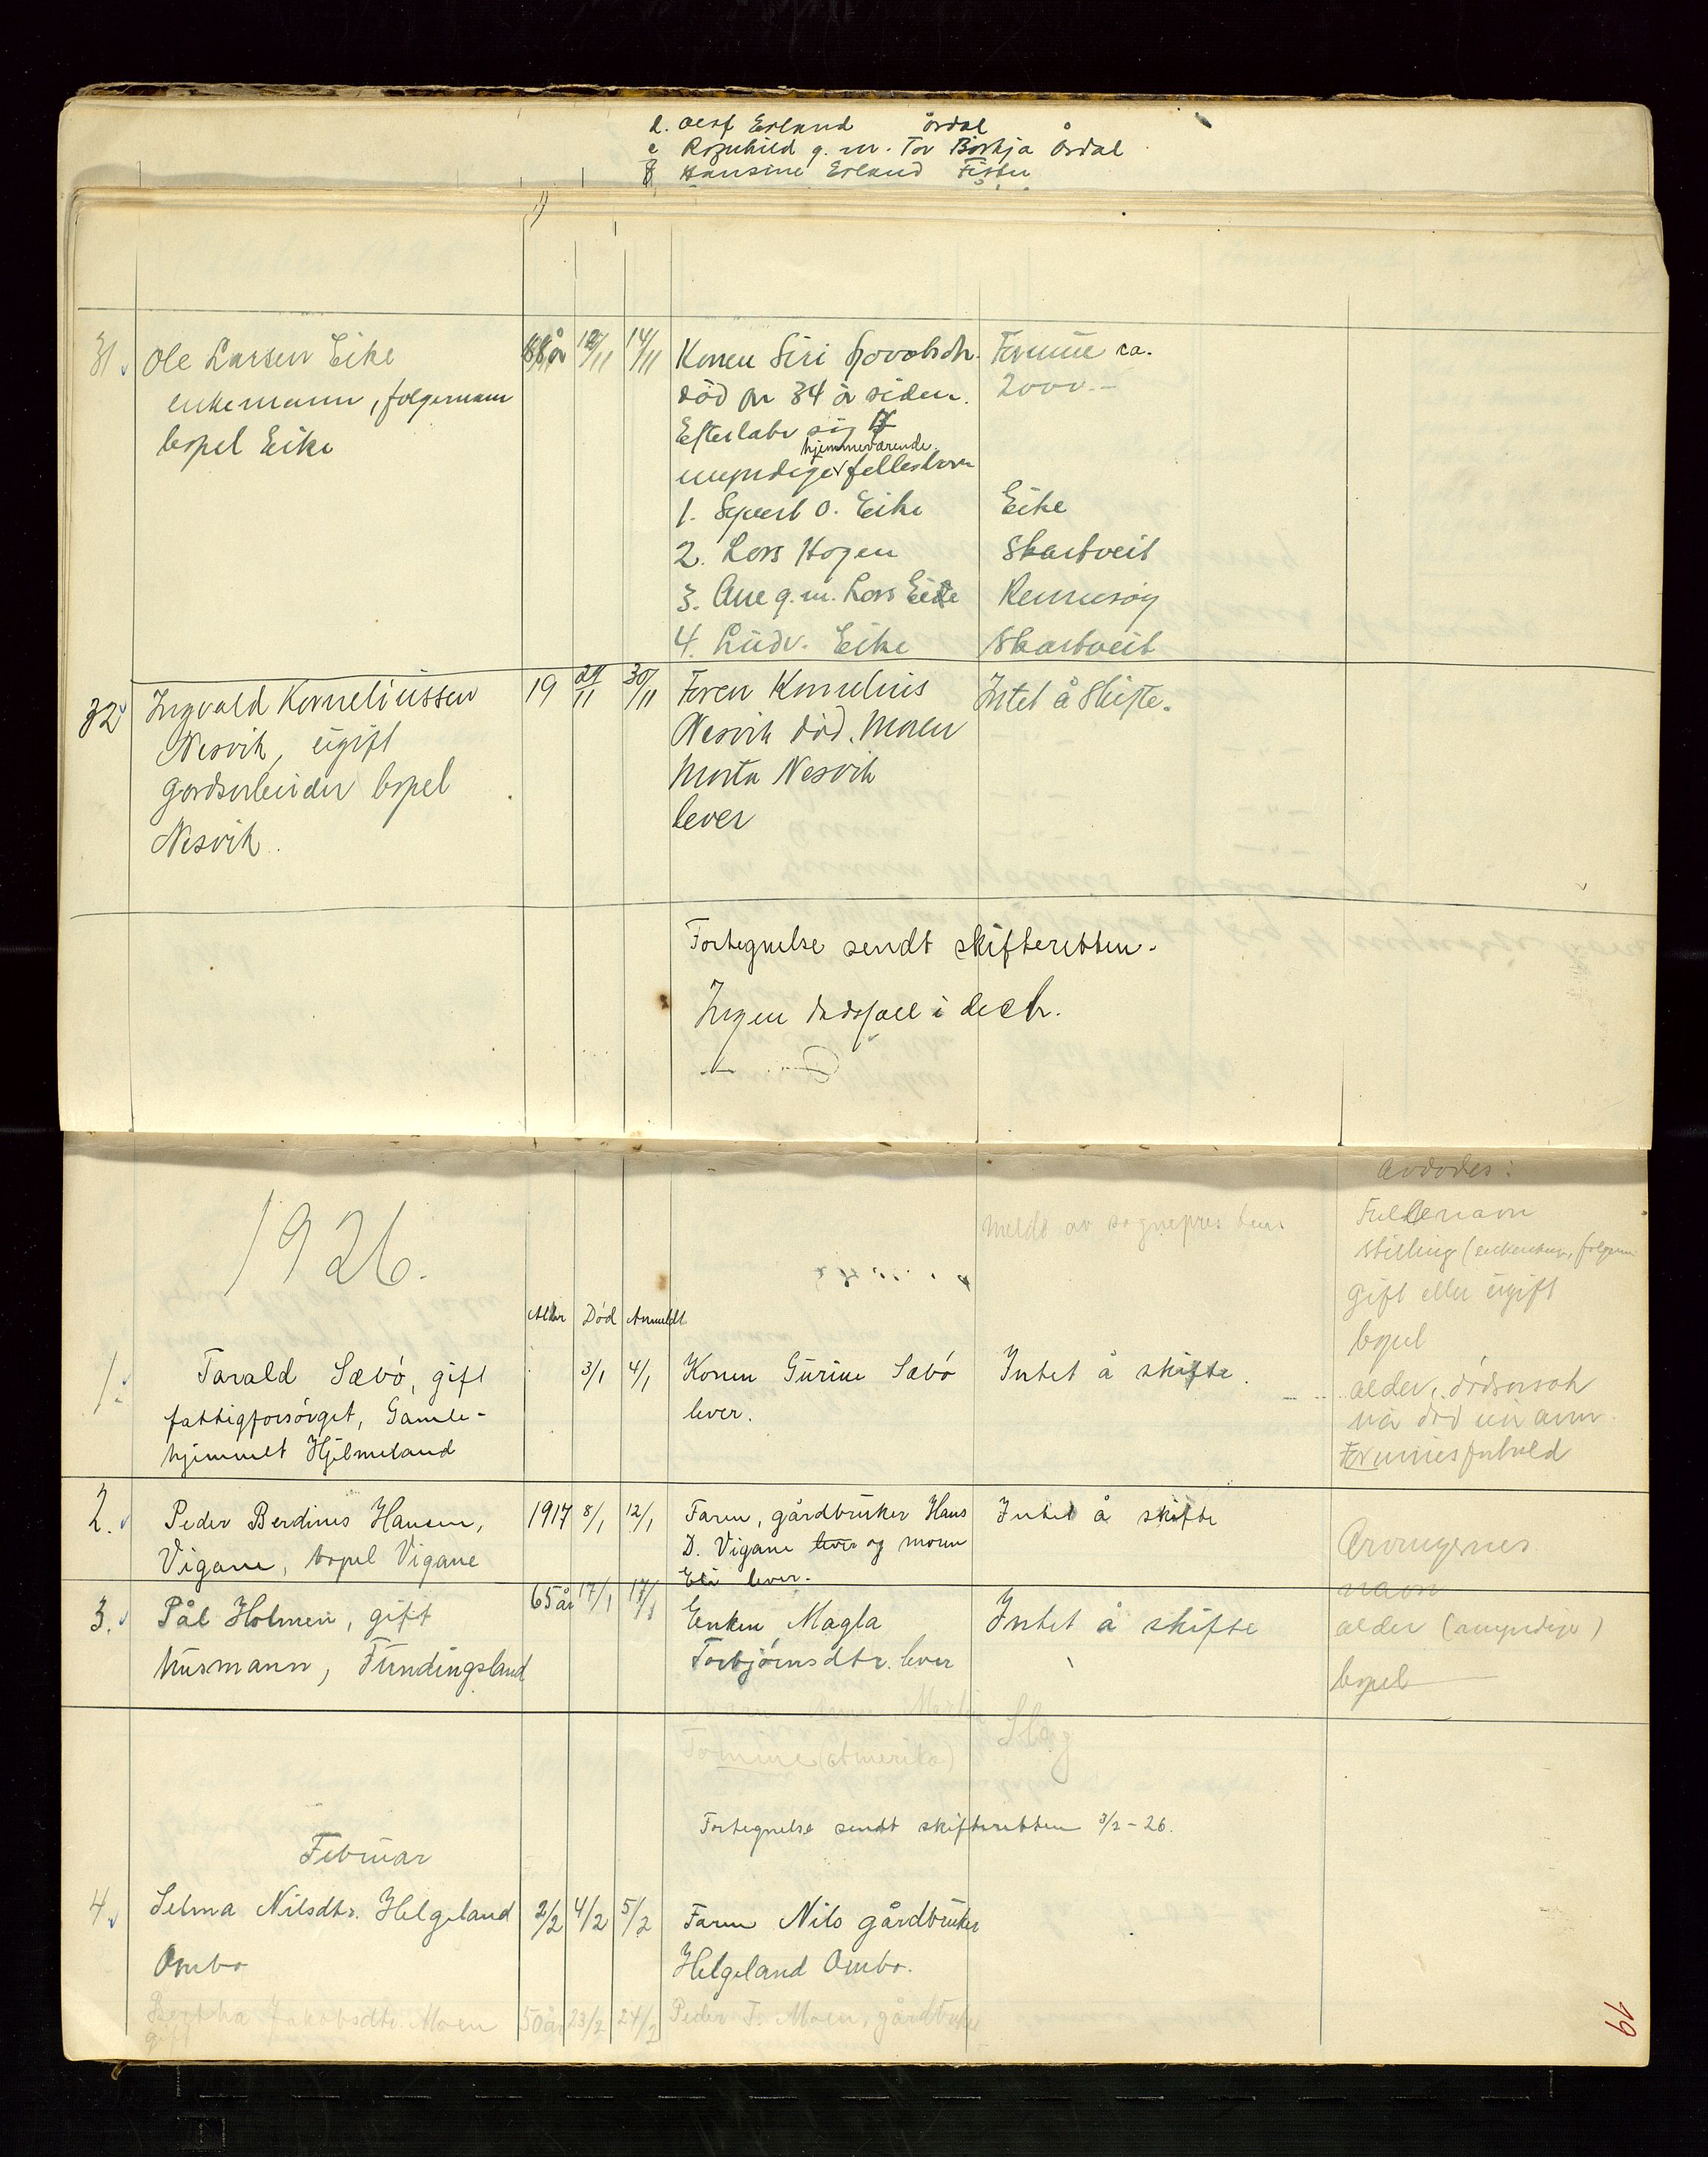 d. Olaf Erland Årdal
e Ragnhild g. m. Tor Børkja Årdal
f Hansine Erland Fister
31 Ole Larsen Eike 88 år 12/11 14/11 Konen Siri Formue ca.
enkemann, folgemann død for 34 år siden. 2000.-
bopel Eike Efterlatr sig 4
hjemmeværende
umyndige fellesbarn
1. Syvert O. Eike Eike
2. Lars Hagen Skartveit
3. Ane g. m. Lars Eide Rennesøy
4. Ludv. Eike Skartveit
32 Ingvald Korneliussen 19 29/11 30/11 Faren Kornelius Intet å skifte.
Nesvik, ugift Nesvik død. Moren
gardsarbeider bopel Marta Nesvik
Nesvik. lever
Fortegnelse sendt skifteretten.
Ingen dødsfall i decbr.
1926.
meldt av sogneprestens
Alder Død Anmeldt
1. Tarald Sæbø, gift 3/1 4/1 Konen Gurine Sæbø Intet å skifte.
fattigforsørget, Gamle- lever.
hjemmet Hjelmeland
2. Peder Berdines Hansen, 1917 8/1 12/1 Faren, gårdbruker Hans Intet å skifte
Vigane, bopel Vigane D. Vigane lever og moren
Eli lever.
3. Pål Holmen, gift 65 år 17/1 17/1 Enken Magla Intet å skifte
husmann, Fundingsland Torbjørnsdtr. lever
Tomine (Amerika)
Fortegnelse sendt skifteretten 3/2-26.
Februar
4. Selma Nilsdtr. Helgeland 2/2 4/2 5/2 Faren Nils gårdbruker
Ombo Helgeland Ombo.
Bertha Jakobsdtr. Moen 50 år 23/2 24/2 Peder T. Moen, gårdbruker
gift
Avdødes:
Fulle navn
stilling (enkemann, folgem
gift eller ugift
bopel
alder, dødsorsak
når død
Formuesforhold
Arvingernes
navn
alder (umyndige)
bopel
19